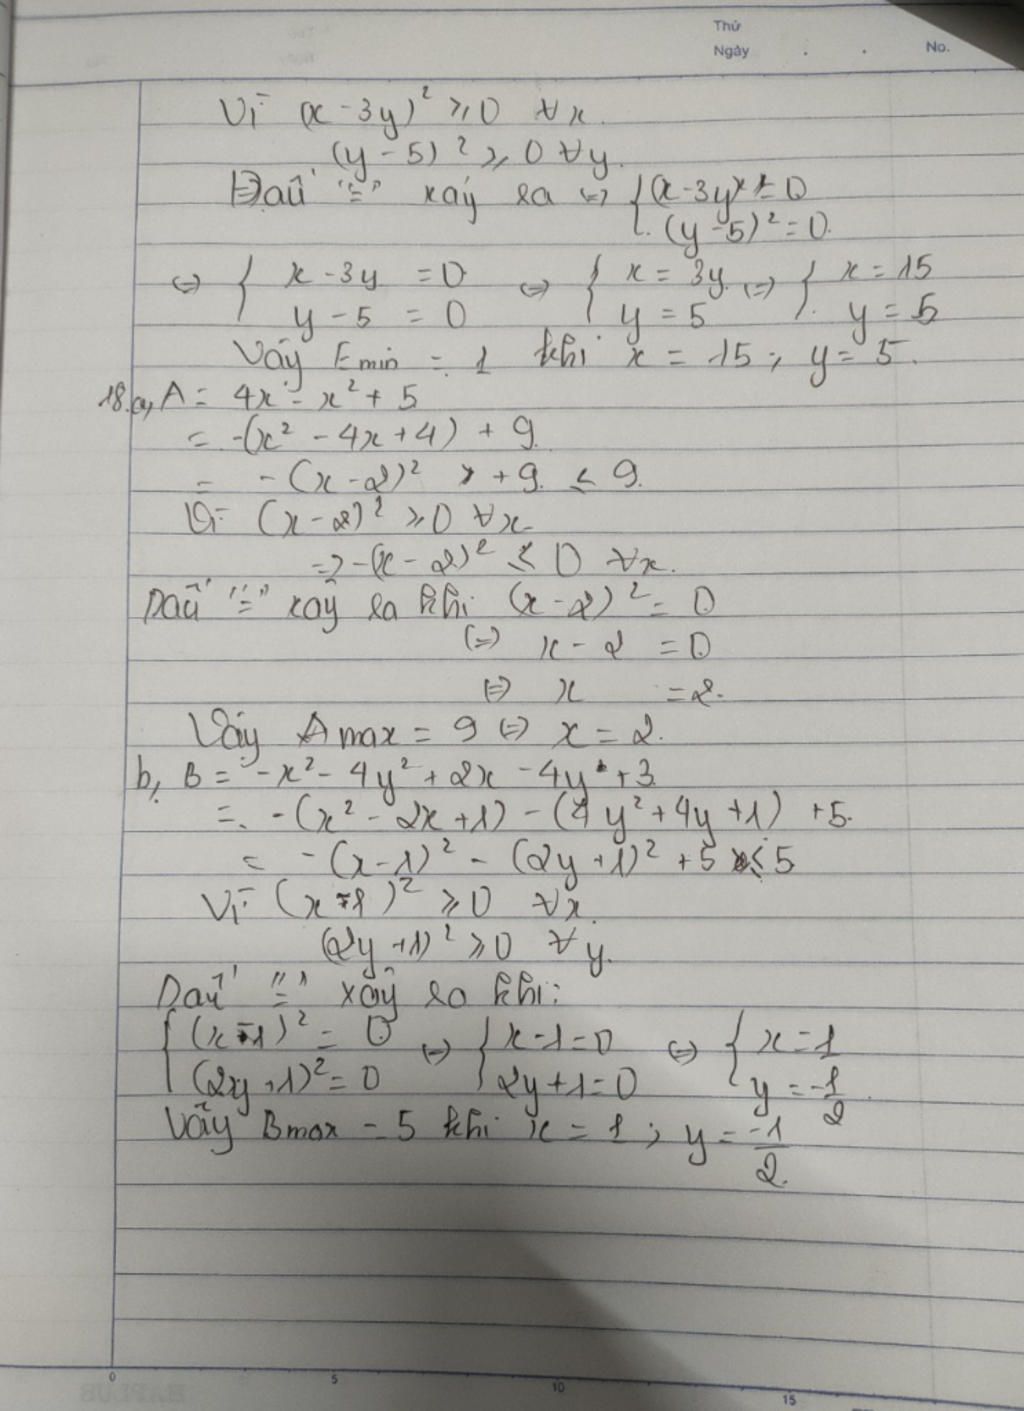 Thứ
Ngày . . No.
Vì (x - 3y)² ≥ 0 ∀x.
(y - 5)² ≥ 0 ∀y.
Dấu "=" xảy ra ⇔ { (x - 3y)² = 0
(y - 5)² = 0.
⇔ { x - 3y = 0 ⇔ { x = 3y ⇔ { x = 15
y - 5 = 0 y = 5 y = 5
Vậy Emin = 1 khi x = 15; y = 5.
18.a, A = 4x - x² + 5
= -(x² - 4x + 4) + 9
= -(x - 2)² + 9 ≤ 9.
Vì (x - 2)² ≥ 0 ∀x
=> -(x - 2)² ≤ 0 ∀x.
Dấu "=" xảy ra khi (x - 2)² = 0
(=) x - 2 = 0
(=) x = 2.
Vậy Amax = 9 (=) x = 2.
b, B = -x² - 4y² + 2x - 4y + 3
= -(x² - 2x + 1) - (4y² + 4y + 1) + 5.
= -(x - 1)² - (2y + 1)² + 5 ≤ 5
Vì (x - 1)² ≥ 0 ∀x.
(2y + 1)² ≥ 0 ∀y.
Dấu "=" xảy ra khi:
{ (x - 1)² = 0 ⇔ { x - 1 = 0 ⇔ { x = 1
(2y + 1)² = 0 2y + 1 = 0 y = -1/2
Vậy Bmax = 5 khi x = 1; y = -1/2.
0 5 10 15